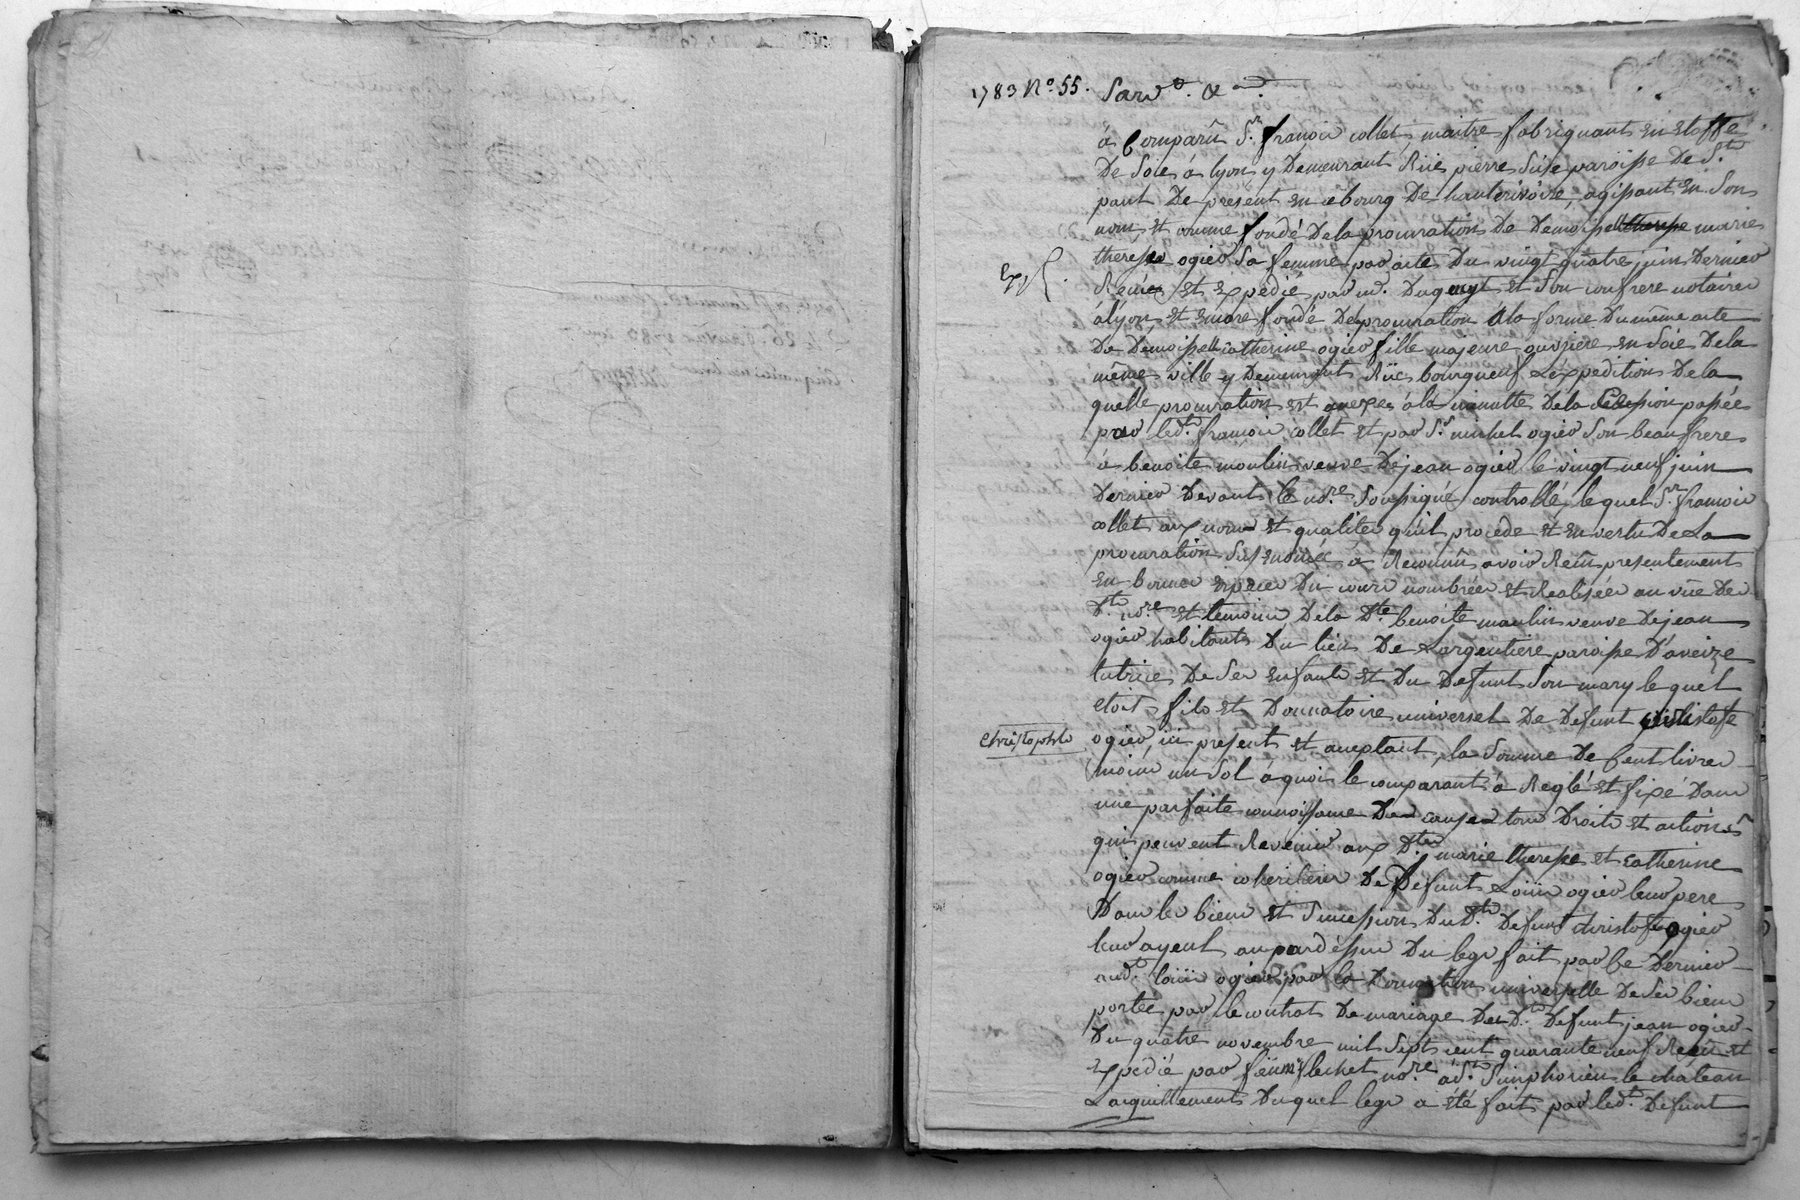 1783 N.o 55. Pard.t &.a
à Comparû S.r françois collet maitre fabriquant en Etoffe
De Soie à lyon y Demeurant Rüe pierre Sise paroisse De S.t
paul De présent en ce bourg De hauterivoire, agissant en Son
nom et comme fondé De la procuration De Demoiselle marie
therese ogier Sa femme par acte Du vingt quatre juin Dernier
Reçûe et Expedié par m.e Dugueyt et Son confrere notaires
à lyon et encore fondé De procuration à la forme Du même acte
De Demoiselle catherine ogier fille majeure ouvriere en Soie De la
même ville y Demeurant Rüe bourgneuf L'expedition De la
quelle procuration est anexée à la minutte De la Cession passée
par led.t françois collet et par S.r michel ogier Son beaufrere
à benoite moulin veuve De jean ogier le vingt neuf juin
Dernier Devant le no.re Soussigné controllé, lequel S.r françois
collet aux noms et qualités qu'il procede et en vertu De La
procuration Susénoncée a Reconnû avoir Reçû presentement
En bonnes Especes Du cours nombrées et Réalisées au vûe De
D.t no.re et temoins De la D.te benoite moulin veuve De jean
ogier habitante Du lieu De Largentiere paroisse D'aveize
tutrice De Ses Enfants et Du Defunt Son mary lequel
etoit fils et Donnatoire universel De Defunt
Christophle
ogier, ici present et acceptant, la Somme De Cent livres
moins un Sol à quoi le comparant à Reglé et fixé Dans
une parfaite connoissance De cause tous Droits et actions
qui peuvent Revenir aux D.tes marie therese et catherine
ogier comme coheritieres De Defunt Loüis ogier leur pere
Dans les biens et Succession Dud.t Defunt christofle ogier
leur ayeul au pardessus Du legs fait par Ce Dernier
aud.t loüis ogier par la Donnation universelle De Ses biens
portée par le contrat De mariage Du D.t Defunt jean ogier
Du quatre novembre mil Sept cent quarante neuf Reçu et
Expedié par feu m.e flechet no.re à S.t Simphorien le chateau
L'acquittement Duquel legs a été fait par led.t Defunt